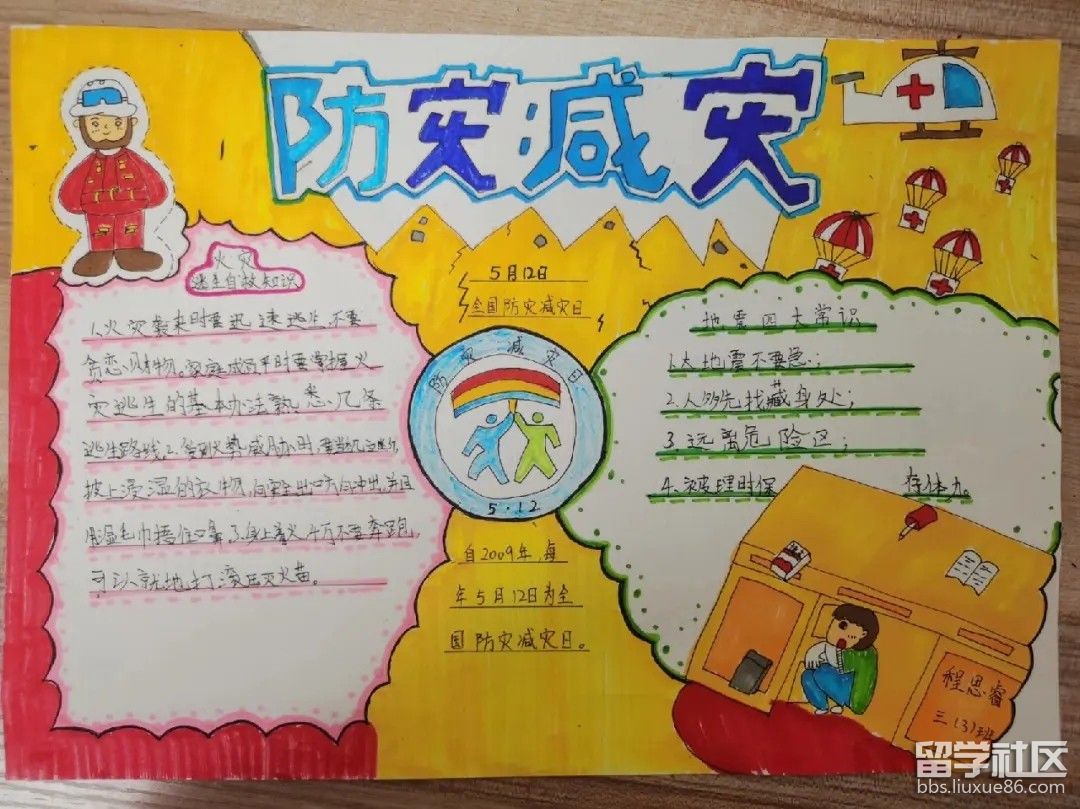 防灾减灾
5月12日
全国防灾减灾日
火灾
逃生自救知识
1.火灾袭来时要迅速逃生,不要
贪恋财物。家庭成员平时要掌握火
灾逃生的基本办法,熟悉几条
逃生路线2.
披上浸湿的衣物,向安全出口方向冲出,并且
用湿毛巾捂住口鼻,3.身上着火,千万不要奔跑,
可以就地打滚压灭火苗。
防灾减灾日
5·12
自2009年,每
年5月12日为全
国防灾减灾日。
地震四大常识
1.大地震不要急;
2.人多先找藏身处;
3.远离危险区;
4.被埋时保 存体力。
程思睿
三(3)班
留学社区
bbs.liuxue86.com